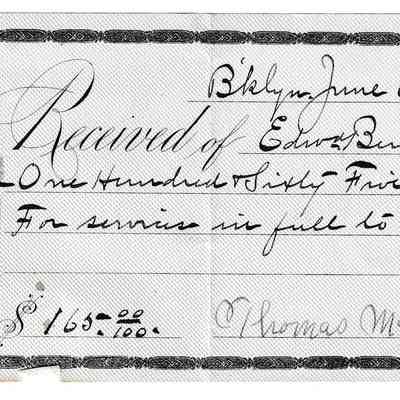 B'klyn, June
Received of Edwd
One Hundred & Sixty Five
For services in full to
$ 165 00/100.
Thomas